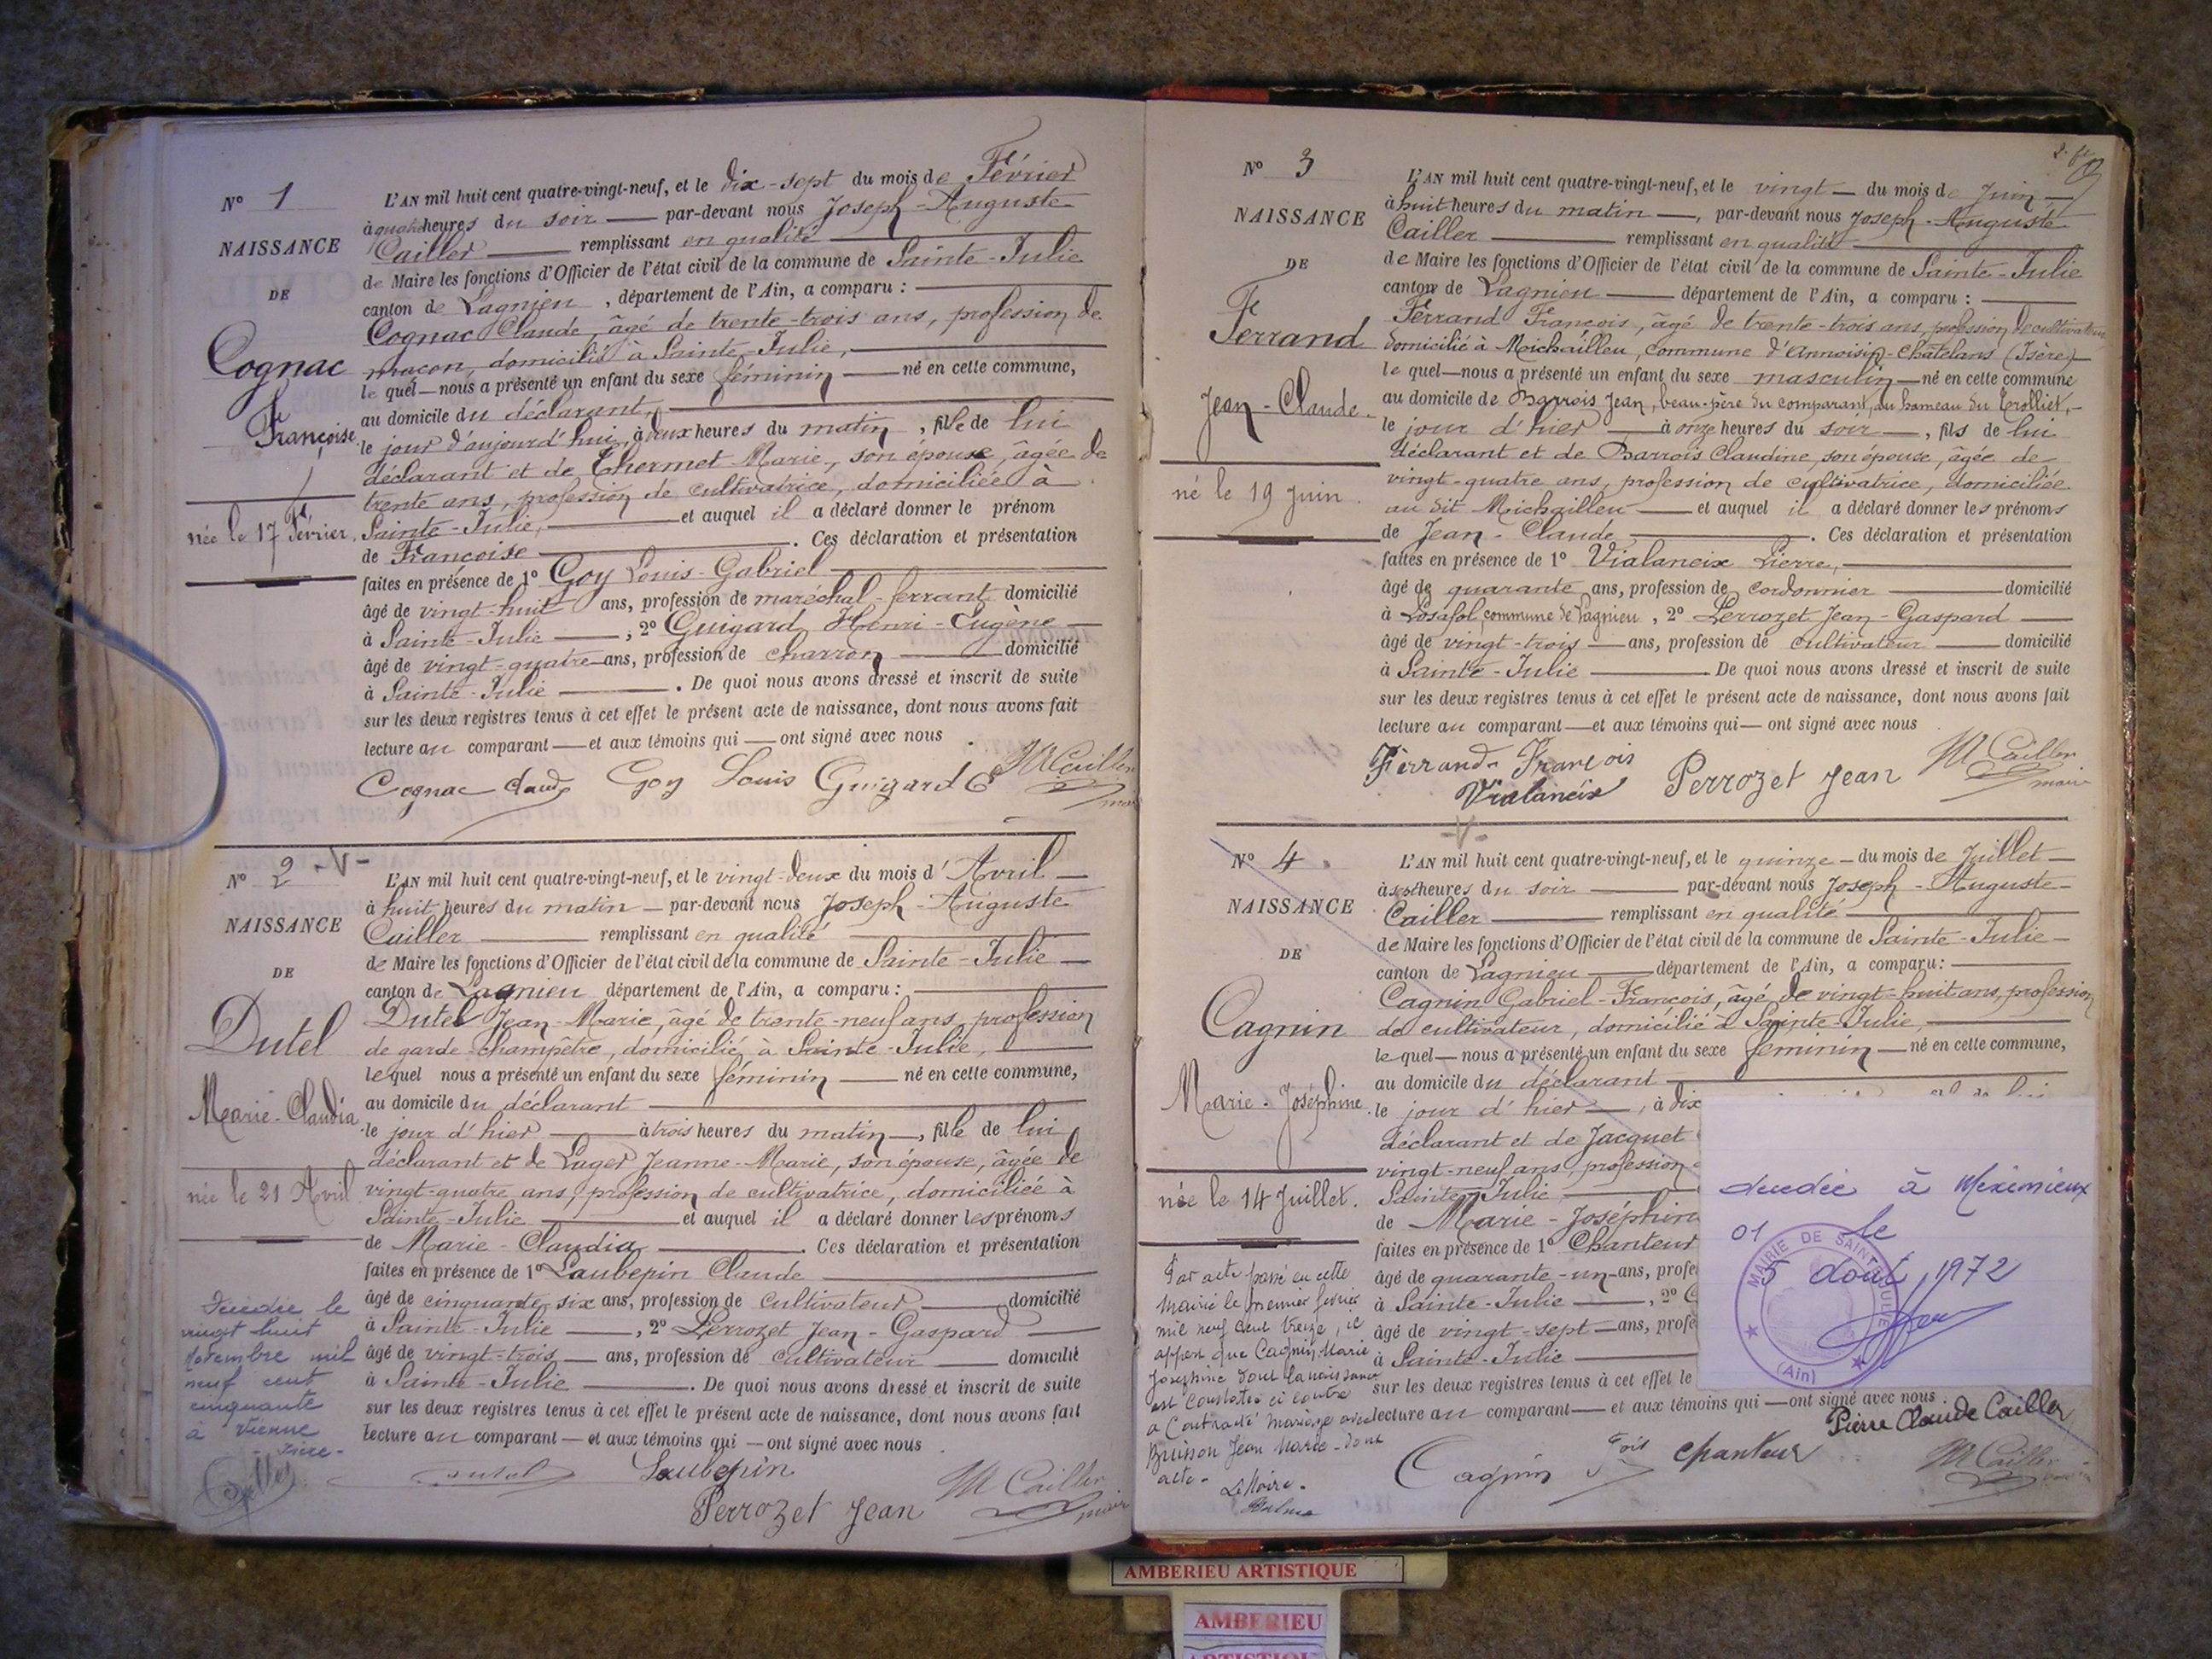 N° 1
NAISSANCE
DE
Cognac
Françoise
née le 17 Février.
L'AN mil huit cent quatre-vingt-neuf, et le dix-sept du mois de Février
à quatre heures du soir — par-devant nous Joseph-Auguste
Cailler — remplissant en qualité
de Maire les fonctions d'Officier de l'état civil de la commune de Sainte-Julie
canton de Lagnieu, département de l'Ain, a comparu :
Cognac Claude, âgé de trente-trois ans, profession de
maçon, domicilié à Sainte-Julie,
le quel — nous a présenté un enfant du sexe féminin — né en cette commune,
au domicile du déclarant,
le jour d'aujourd'hui, à deux heures du matin, fille de lui
déclarant et de Thermet Marie, son épouse, âgée de
trente ans, profession de cultivatrice, domiciliée à
Sainte-Julie, — et auquel il a déclaré donner le prénom
de Françoise — . Ces déclaration et présentation
faites en présence de 1° Goy Louis-Gabriel
âgé de vingt-huit ans, profession de maréchal-ferrant domicilié
à Sainte-Julie — ; 2° Guigard Henri-Eugène —
âgé de vingt-quatre ans, profession de charron — domicilié
à Sainte-Julie — . De quoi nous avons dressé et inscrit de suite
sur les deux registres tenus à cet effet le présent acte de naissance, dont nous avons fait
lecture au comparant — et aux témoins qui — ont signé avec nous .
Cognac Claude Goy Louis Guigard M Cailler
maire
N° 2 -V-
NAISSANCE
DE
Dutel
Marie-Claudia
née le 21 Avril
L'AN mil huit cent quatre-vingt-neuf, et le vingt-deux du mois d'Avril —
à huit heures du matin — par-devant nous Joseph-Auguste
Cailler — remplissant en qualité
de Maire les fonctions d'Officier de l'état civil de la commune de Sainte-Julie —
canton de Lagnieu département de l'Ain, a comparu :
Dutel Jean-Marie, âgé de trente-neuf ans, profession
de garde-champêtre, domicilié à Sainte-Julie,
le quel nous a présenté un enfant du sexe féminin — né en cette commune,
au domicile du déclarant
le jour d'hier — à trois heures du matin —, fille de lui
déclarant et de Lager Jeanne-Marie, son épouse, âgée de
vingt-quatre ans, profession de cultivatrice, domiciliée à
Sainte-Julie — et auquel il a déclaré donner les prénoms
de Marie-Claudia — . Ces déclaration et présentation
faites en présence de 1° Laubepin Claude
âgé de cinquante-six ans, profession de cultivateur — domicilié
à Sainte-Julie — , 2° Perrozet Jean-Gaspard —
âgé de vingt-trois — ans, profession de cultivateur — domicilié
à Sainte-Julie — . De quoi nous avons dressé et inscrit de suite
sur les deux registres tenus à cet effet le présent acte de naissance, dont nous avons fait
lecture au comparant — et aux témoins qui — ont signé avec nous .
Décédée le
vingt huit
Novembre mil
neuf cent
cinquante
à Vienne
- Isère -
Dutel Laubepin
Perrozet Jean M Cailler
maire
N° 3
NAISSANCE
DE
Ferrand
Jean-Claude.
né le 19 Juin.
L'AN mil huit cent quatre-vingt-neuf, et le vingt — du mois de Juin —
à huit heures du matin —, par-devant nous Joseph-Auguste
Cailler — remplissant en qualité
de Maire les fonctions d'Officier de l'état civil de la commune de Sainte-Julie
canton de Lagnieu — département de l'Ain, a comparu :
Ferrand François, âgé de trente-trois ans, profession de cultivateur
domicilié à Michailleu, commune d'Annoisin-Châtelans (Isère)
le quel — nous a présenté un enfant du sexe masculin — né en cette commune
au domicile de Barrois Jean, beau-père du comparant, au hameau du Trolliet, —
le jour d'hier — à onze heures du soir —, fils de lui
déclarant et de Barrois Claudine, son épouse, âgée de
vingt-quatre ans, profession de cultivatrice, domiciliée
au dit Michailleu — et auquel il a déclaré donner les prénoms
de Jean-Claude — . Ces déclaration et présentation
faites en présence de 1° Vialaneix Pierre,
âgé de quarante ans, profession de cordonnier — domicilié
à Posafol, commune de Lagnieu, 2° Perrozet Jean-Gaspard —
âgé de vingt-trois — ans, profession de cultivateur — domicilié
à Sainte-Julie — De quoi nous avons dressé et inscrit de suite
sur les deux registres tenus à cet effet le présent acte de naissance, dont nous avons fait
lecture au comparant — et aux témoins qui — ont signé avec nous
Ferrand François
Vialaneix Perrozet Jean M Cailler
maire
-V-
N° 4
NAISSANCE
DE
Cagnin
Marie-Joséphine
née le 14 Juillet.
L'AN mil huit cent quatre-vingt-neuf, et le quinze — du mois de Juillet —
à sept heures du soir — par-devant nous Joseph-Auguste —
Cailler — remplissant en qualité
de Maire les fonctions d'Officier de l'état civil de la commune de Sainte-Julie —
canton de Lagnieu — département de l'Ain, a comparu :
Cagnin Gabriel-François, âgé de vingt-huit ans, profession
de cultivateur, domicilié à Sainte-Julie,
le quel — nous a présenté un enfant du sexe féminin — né en cette commune,
au domicile du déclarant
le jour d'hier —, à dix
déclarant et de Jacquet
vingt-neuf ans, profession
Sainte-Julie
de Marie-Joséphine
faites en présence de 1° Chanteur
âgé de quarante-un ans, profe
à Sainte-Julie — , 2°
âgé de vingt-sept — ans, profe
à Sainte-Julie
sur les deux registres tenus à cet effet le
lecture au comparant — et aux témoins qui — ont signé avec nous .
Par acte passé en cette
Mairie le premier février
mil neuf cent treize, il
appert que Cagnin Marie
Joséphine dont la naissance
est constatée ci contre
a contracté mariage avec
Buisson Jean Marie - dont
acte.
Le Maire.
décédée à Meximieux
01 le
5 aout 1972
MAIRIE DE SAINTE JULIE
(Ain)
Pierre Claude Cailler
Cagnin fois Chanteur M Cailler
AMBERIEU ARTISTIQUE
AMBERIEU
ARTISTIQUE